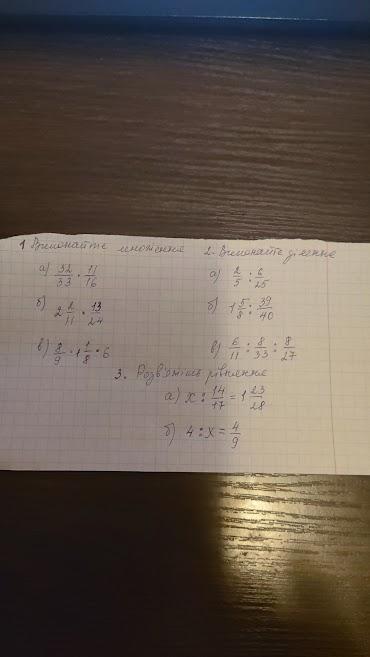 1 Виконайте множення
а) 32/33 · 11/16
б) 2 2/11 · 13/24
в) 8/9 · 1 1/8 · 6
2. Виконайте ділення
а) 2/5 : 6/25
б) 1 5/8 : 39/40
в) 6/11 : 8/33 : 8/27
3. Розв'яжіть рівняння
а) x : 14/17 = 1 23/28
б) 4 : x = 4/9